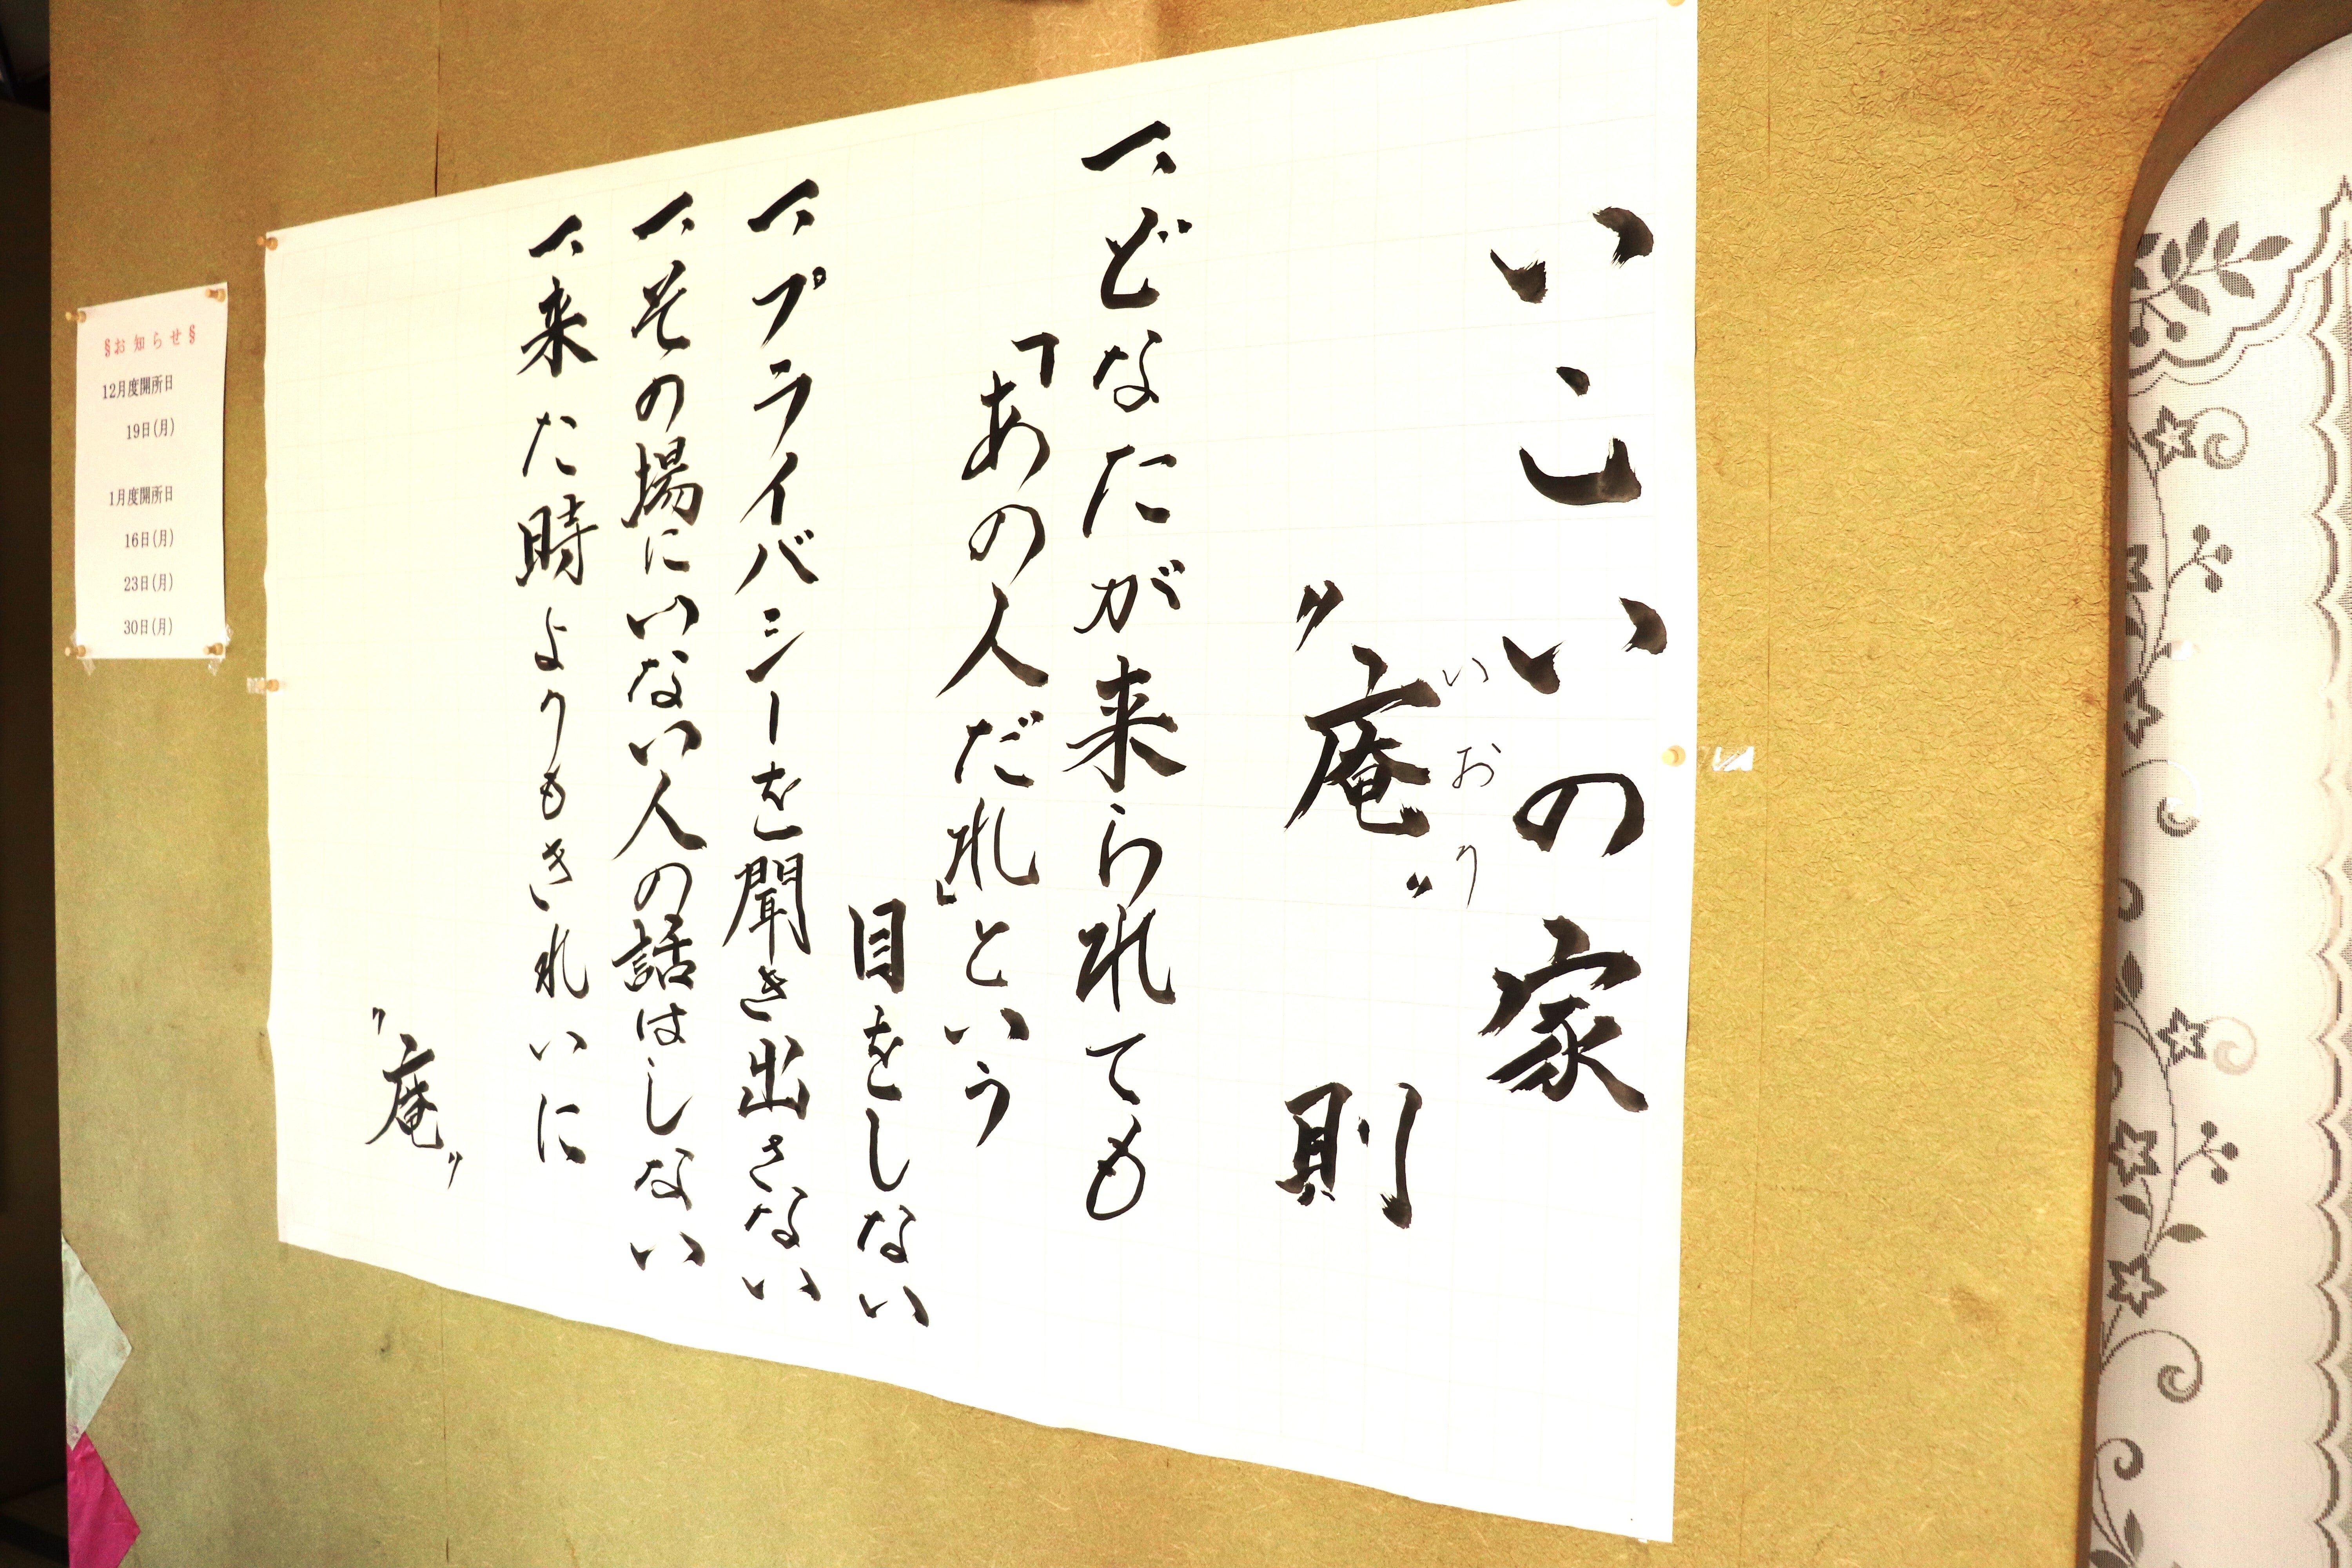 いこいの家
〝庵〟則
いおり
一、どなたが来られても
「あの人だれ」という
目をしない
一、プライバシーを聞き出さない
一、その場にいない人の話はしない
一、来た時よりもきれいに
〝庵〟
§お知らせ§
12月度開所日
19日(月)
1月度開所日
16日(月)
23日(月)
30日(月)